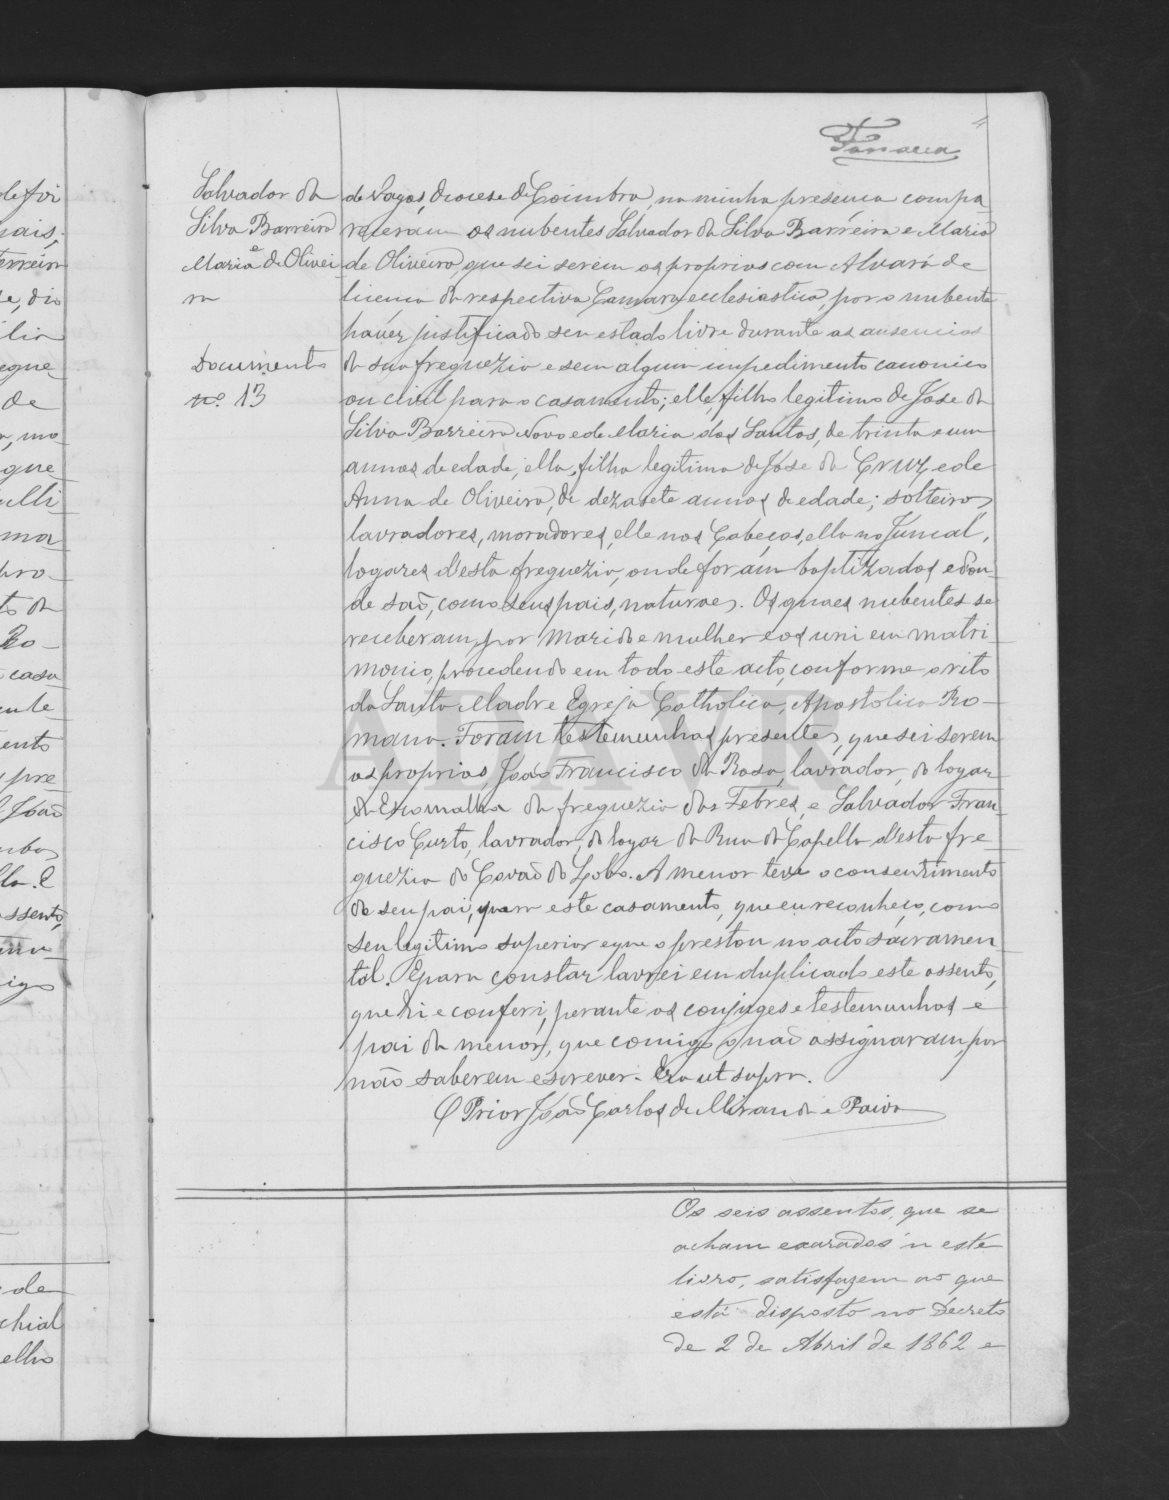 4
Fonseca
Salvador da
Silva Barreira
e
Maria de Olivei
ra
Documento
nº. 13
de Vagos, diocese de Coimbra, na minha presença compa
receram os nubentes Salvador da Silva Barreira e Maria
de Oliveira, que sei serem os proprios com Alvará de
licença da respectiva Camara ecclesiastica, por o nubente
haver justificado seu estado livre durante as ausencias
da sua freguezia e sem algum impedimento canonico
ou civil para o casamento; elle, filho legitimo de Jose da
Silva Barreira Novo e de Maria dos Santos, de trinta e um
annos de edade; ella, filha legitima de Jose da Cruz e de
Anna de Oliveira, de dezasete annos de edade; solteiros,
lavradores, moradores, elle nos Cabeços, ella no Juncal,
logares d'esta freguezia, onde foram baptizados e don-
de saõ, como seus pais, naturaes. Os quaes nubentes se
receberam por marido e mulher e os uni em matri-
monio, procedendo em todo este acto, conforme o rito
da Santa Madre Egreja Catholica, Apostolica Ro-
mana. Foram testemunhas presentes, que sei serem
os proprios João Francisco da Rosa, lavrador, do logar
da Escomalha da freguezia das Febres, e Salvador Fran-
cisco Curto, lavrador, do logar da Rua da Capella d'esta fre-
guezia do Covaõ do Lobo. A menor teve o consentimento
de seu pai, para este casamento, que eu reconheço, como
seu legitimo superior e que o prestou no acto sacramen-
tal. E para constar lavrei em duplicado este assento,
que li e conferi, perante os conjuges e testemunhas e
pai da menor, que comigo o naõ assignaram, por
não saberem escrever. Era ut supra.
O Prior João Carlos de Miranda e Paiva
Os seis assentos, que se
acham exarados n'este
livro, satisfazem ao que
está disposto no Decreto
de 2 de Abril de 1862 e
de foi
pais,
erreira
e, dio
lia
egue
de
, mo
que
ulli
ma
pro-
to da
Ro-
casa
ente
ento
pre
João
lla. E
assento,
de
chial
elho
ADAVR